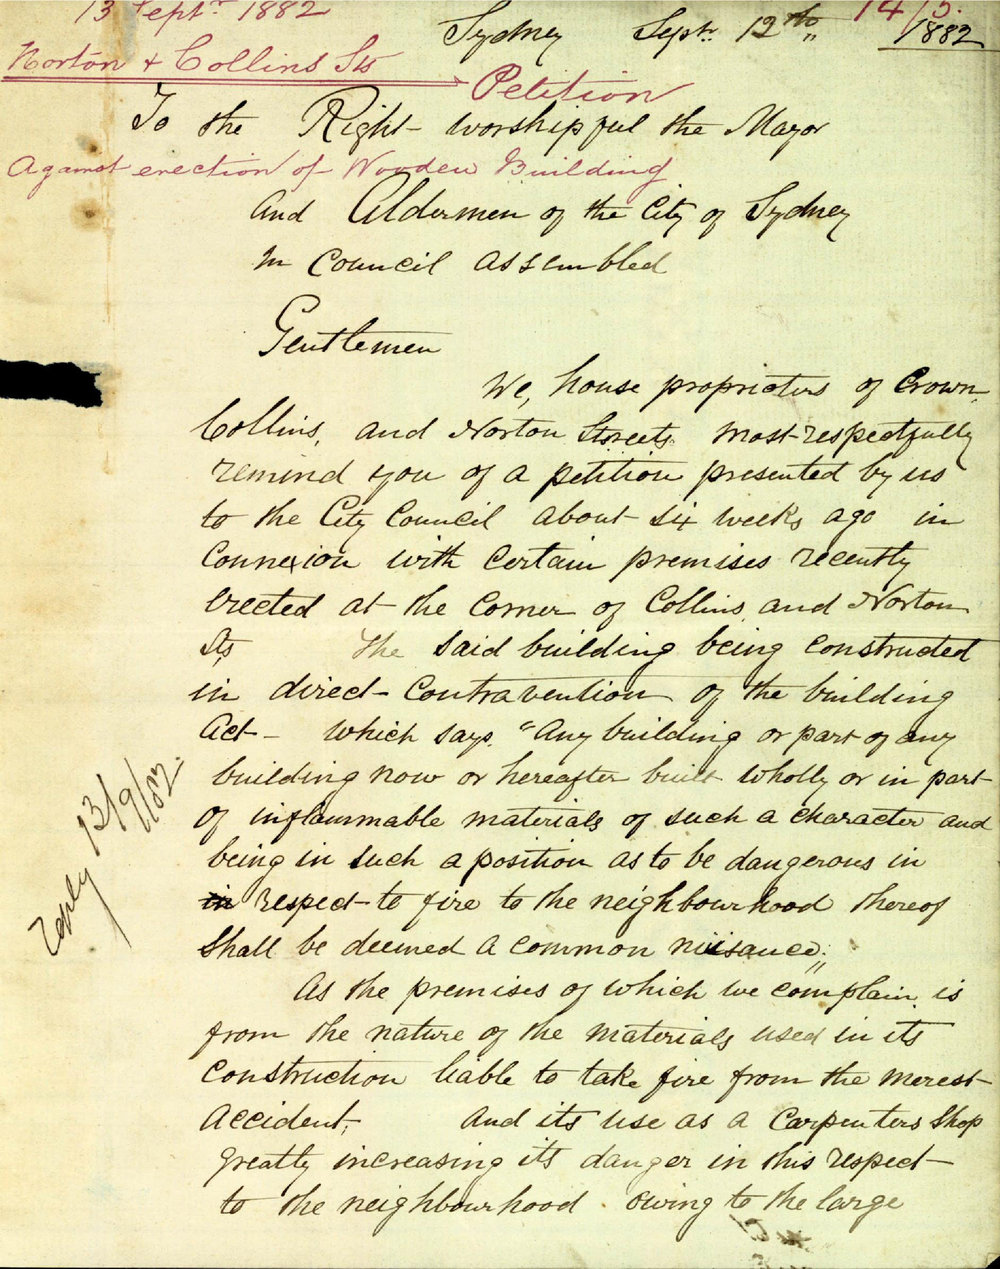 13 Septr 1882
14/5.
Sydney Septr 12th 1882
Norton & Collins Sts
Petition
To the Right worshipful the Mayor
Against erection of Wooden Building
and Aldermen of the City of Sydney
in Council assembled
Gentlemen
We, house proprietors of Crown,
Collins, and Norton Streets most respectfully
remind you of a petition presented by us
to the City Council about six weeks ago in
Connexion with certain premises recently
erected at the corner of Collins and Norton
Sts The said building being constructed
in direct contravention of the building
Act - which says, "Any building or part of any
building now or hereafter built wholly or in part
of inflammable materials of such a character and
being in such a position as to be dangerous in
in respect to fire to the neighbourhood thereof
shall be deemed a common nuisance,"
As the premises of which we complain is
from the nature of the materials used in its
construction liable to take fire from the merest
accident, and its use as a Carpenters Shop
greatly increasing its danger in this respect
to the neighbourhood owing to the large
reply 13/9/82.